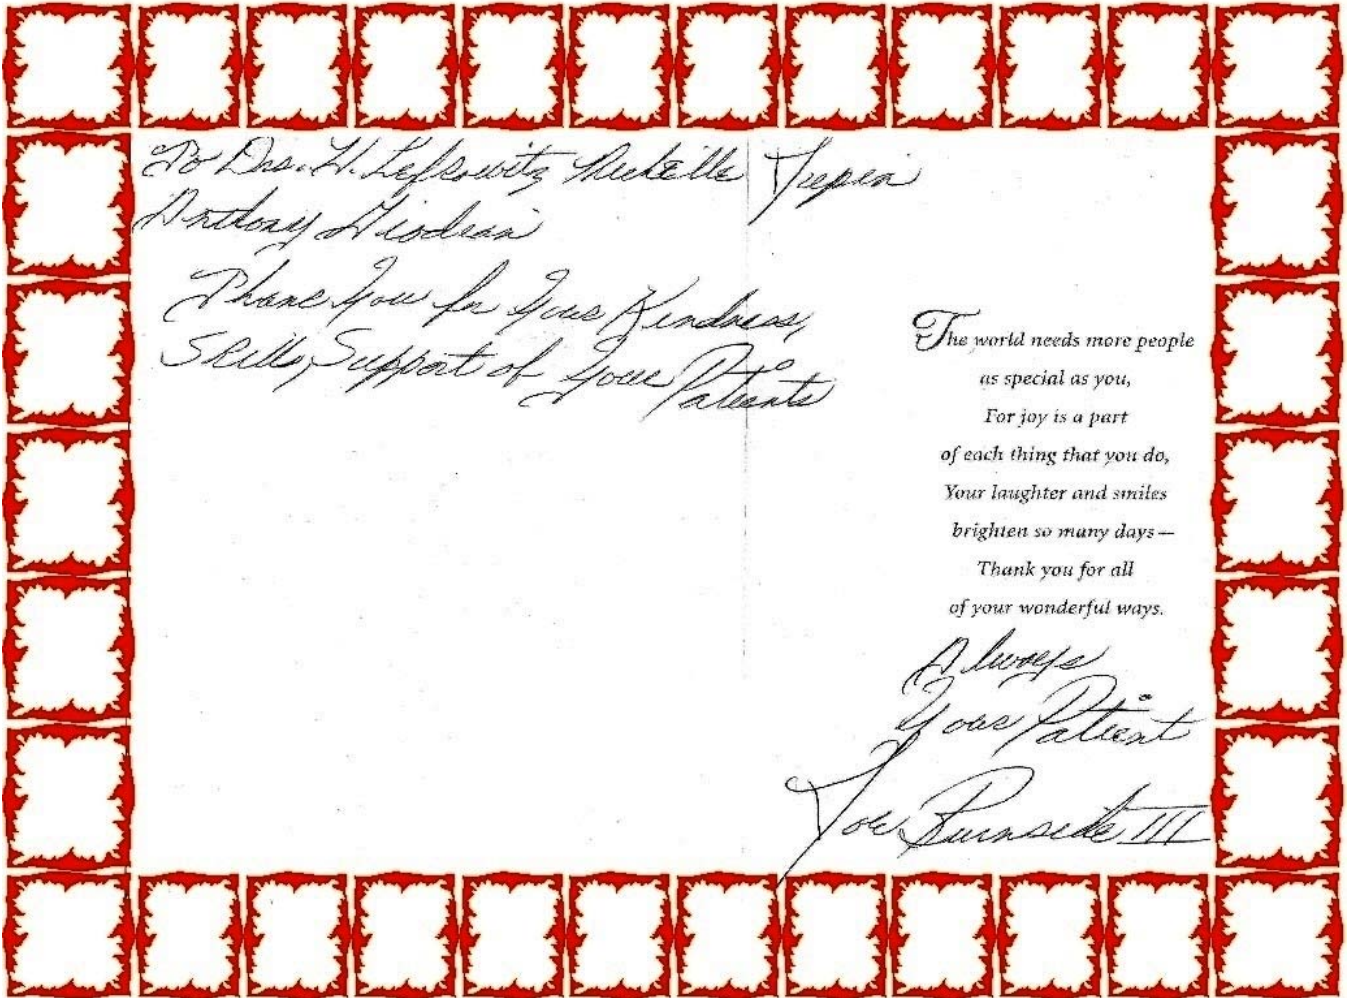 To Drs. H. Lefkowitz Michelle Turpin
Anthony Giodean
Thank You for Your Kindness,
Skills, Support of Your Patients
The world needs more people
as special as you,
For joy is a part
of each thing that you do,
Your laughter and smiles
brighten so many days—
Thank you for all
of your wonderful ways.
Always
Your Patient
Joe Burnside III